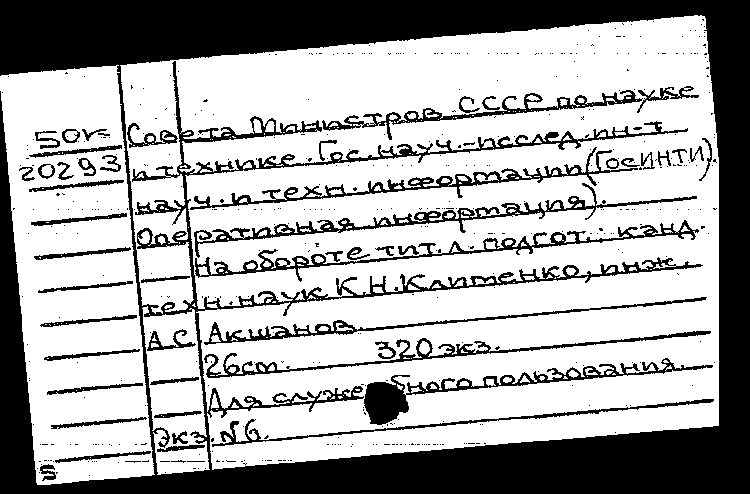 50к Совета Министров СССР по науке
20293 и технике. Гос. науч.-исслед. ин-т
науч. и техн. информации (ГосИНТИ).
Оперативная информация).
На обороте тит. л. подгот.: канд.
техн. наук К.Н. Клименко, инж.
А.С. Акшанов.
26 см. 320 экз.
Для служебного пользования.
Экз. N 6.